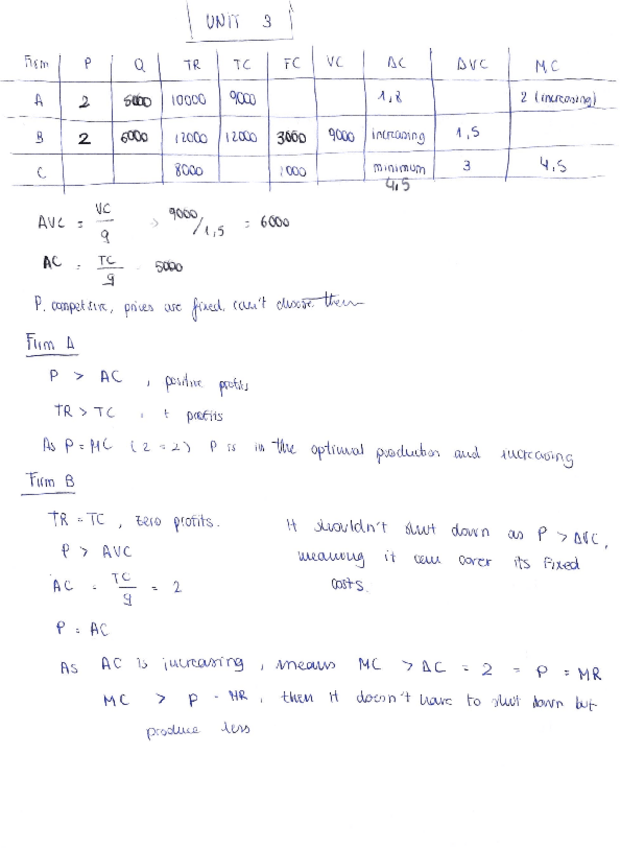 UNIT 3
Firm P Q TR TC FC VC AC AVC MC
A 2 5000 10000 9000 1,8 2 (increasing)
B 2 6000 12000 12000 3000 9000 increasing 1,5
C 8000 1000 minimum 4,5 3 4,5
AVC = VC/q → 9000/1,5 = 6000
AC = TC/q 5000
P. competitive, prices are fixed, can't choose them
Firm A
P > AC , positive profits
TR > TC , + profits
As P = MC (2 = 2) P is in the optimal production and increasing
Firm B
TR = TC , zero profits.
P > AVC
AC = TC/q = 2
P = AC
It shouldn't shut down as P > AVC,
meaning it can cover its fixed
costs.
As AC is increasing , means MC > AC = 2 = P = MR
MC > P = MR , then it doesn't have to shut down but
produce less